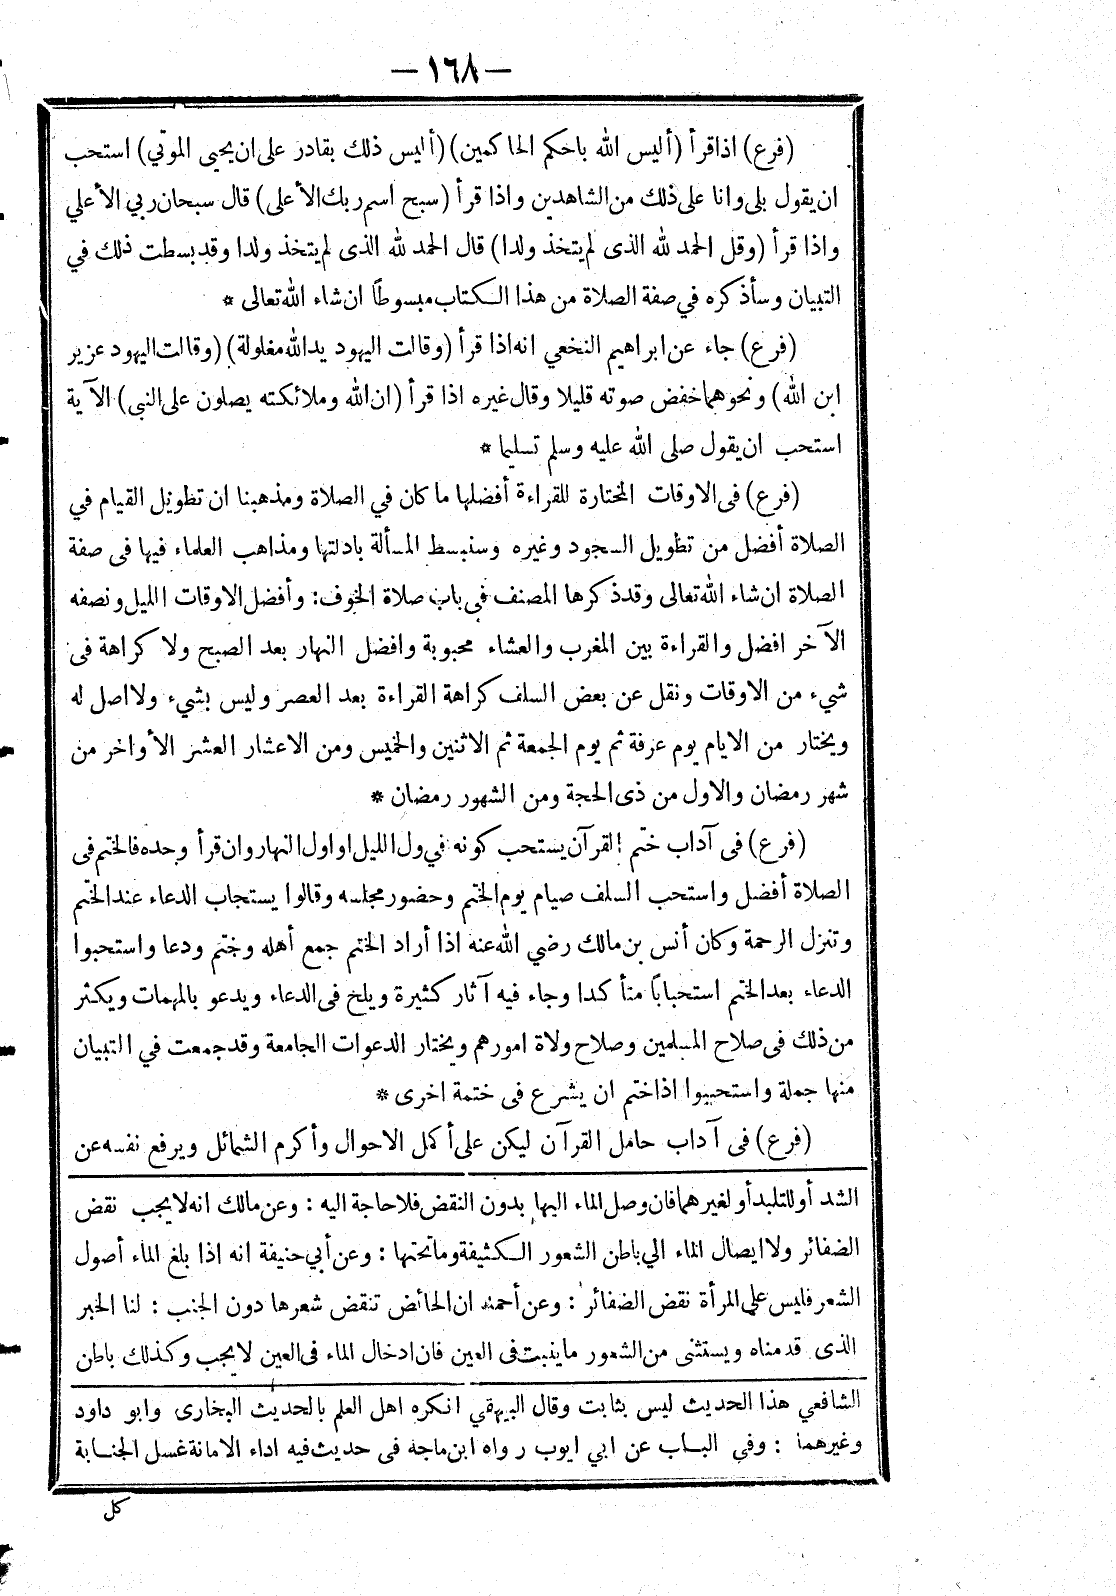 — ١٦٨ —
(فرع) اذا قرأ (أليس الله باحكم الحاكمين) (أليس ذلك بقادر على ان يحيى الموتي) استحب
ان يقول بلى وانا على ذلك من الشاهدين واذا قرأ (سبح اسم ربك الأعلى) قال سبحان ربي الأعلي
واذا قرأ (وقل الحمد لله الذى لم يتخذ ولدا) قال الحمد لله الذى لم يتخذ ولدا وقد بسطت ذلك في
التبيان وسأذكره في صفة الصلاة من هذا الكتاب مبسوطاً ان شاء الله تعالى *
(فرع) جاء عن ابراهيم النخعي انه اذا قرأ (وقالت اليهود يد الله مغلولة) (وقالت اليهود عزير
ابن الله) ونحوهما خفض صوته قليلا وقال غيره اذا قرأ (ان الله وملائكته يصلون على النبي) الآية
استحب ان يقول صلى الله عليه وسلم تسليما *
(فرع) فى الاوقات المختارة للقراءة أفضلها ما كان في الصلاة ومذهبنا ان تطويل القيام في
الصلاة أفضل من تطويل السجود وغيره وسنبسط المسألة بادلتها ومذاهب العلماء فيها فى صفة
الصلاة ان شاء الله تعالى وقد ذكرها المصنف في باب صلاة الخوف: وأفضل الاوقات الليل ونصفه
الآخر افضل والقراءة بين المغرب والعشاء محبوبة وافضل النهار بعد الصبح ولا كراهة فى
شيء من الاوقات ونقل عن بعض السلف كراهة القراءة بعد العصر وليس بشيء ولا اصل له
ويختار من الايام يوم عرفة ثم يوم الجمعة ثم الاثنين والخميس ومن الاعشار العشر الأواخر من
شهر رمضان والاول من ذى الحجة ومن الشهور رمضان *
(فرع) فى آداب ختم القرآن يستحب كونه في ول الليل او اول النهار وان قرأ وحده فالختم فى
الصلاة أفضل واستحب السلف صيام يوم الختم وحضور مجلسه وقالوا يستجاب الدعاء عند الختم
وتنزل الرحمة وكان أنس بن مالك رضي الله عنه اذا أراد الختم جمع أهله وختم ودعا واستحبوا
الدعاء بعد الختم استحباباً متأكدا وجاء فيه آثار كثيرة ويلح فى الدعاء ويدعو بالمهمات ويكثر
من ذلك فى صلاح المسلمين وصلاح ولاة امورهم ويختار الدعوات الجامعة وقد جمعت في التبيان
منها جملة واستحبوا اذا ختم ان يشرع فى ختمة اخرى *
(فرع) فى آداب حامل القرآن ليكن على أكمل الاحوال وأكرم الشمائل ويرفع نفسه عن
الشد أو للتلبد أو لغيرهما فان وصل الماء اليها بدون النقض فلا حاجة اليه : وعن مالك انه لا يجب نقض
الضفائر ولا ايصال الماء الي باطن الشعور الكثيفة وما تحتها : وعن أبي حنيفة انه اذا بلغ الماء أصول
الشعر فليس على المرأة نقض الضفائر : وعن أحمد ان الحائض تنقض شعرها دون الجنب : لنا الخبر
الذى قدمناه ويستثنى من الشعور ما ينبت فى العين فان ادخال الماء فى العين لا يجب وكذلك باطن
الشافعي هذا الحديث ليس بثابت وقال البيهقي انكره اهل العلم بالحديث البخارى وابو داود
وغيرهما : وفي الباب عن ابي ايوب رواه ابن ماجه فى حديث فيه اداء الامانة غسل الجنابة
كل